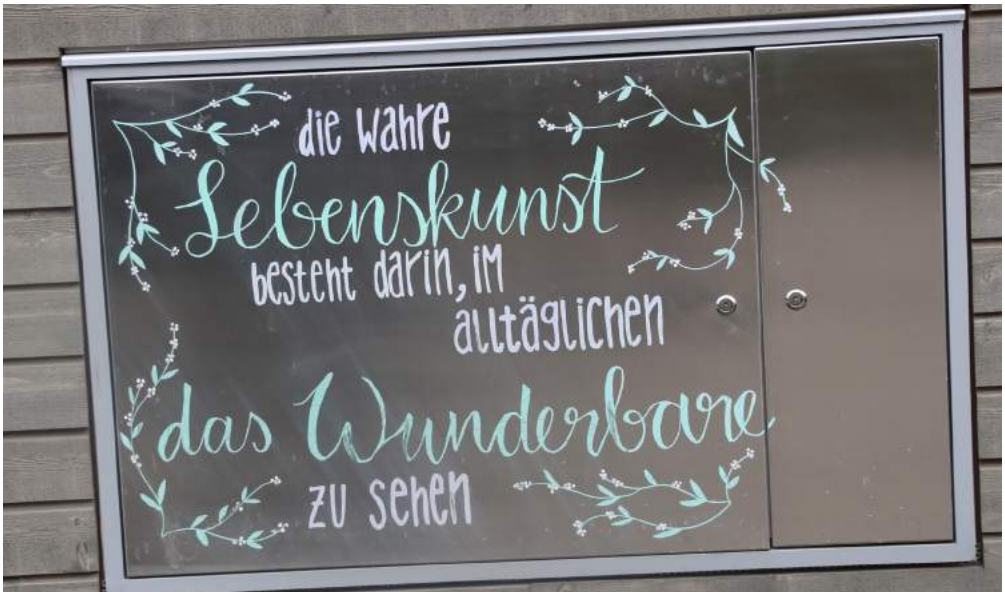 die wahre
Lebenskunst
besteht darin, im
alltäglichen
das Wunderbare
zu sehen